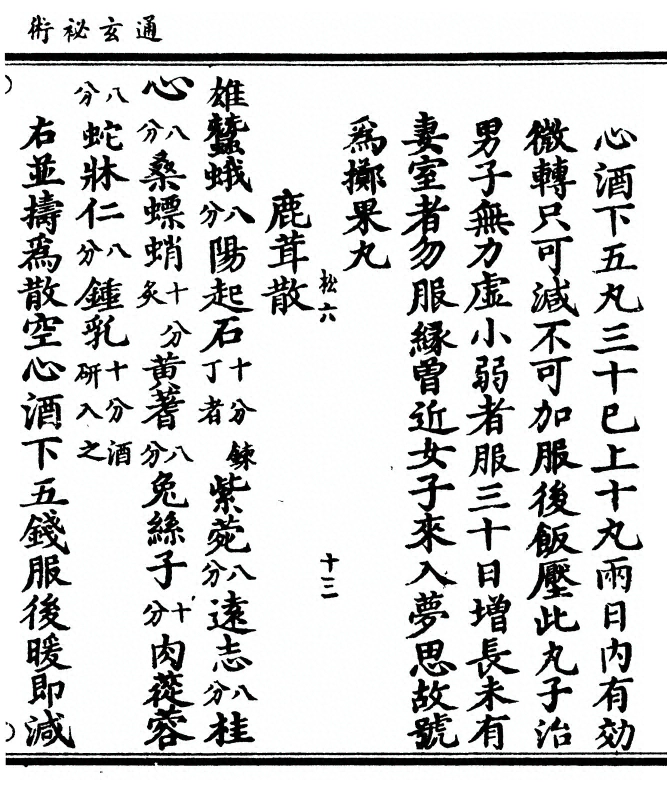 通玄祕術
心酒下五丸三十巳上十丸兩日內有効
微轉只可減不可加服後飯壓此丸子治
男子無力虛小弱者服三十日增長未有
妻室者勿服緣曾近女子來入夢思故號
爲擲果丸
松六
十三
鹿茸散
雄蠶蛾八分陽起石十分丁者鍊紫菀八分遠志八分桂
心八分桑螵蛸十分炙黃蓍八分兔絲子十分肉蓯蓉
八分蛇牀仁八分鍾乳十分酒研入之
右並擣爲散空心酒下五錢服後暖即減